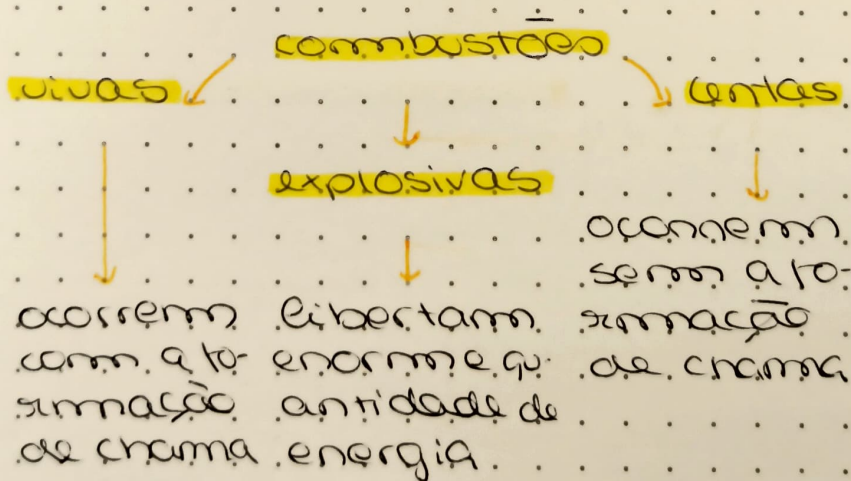 combustões
vivas
lentas
explosivas
ocorrem
com a fo-
rmação
de chama
libertam
enorme qu-
antidade de
energia
ocorrem
sem a fo-
rmação
de chama